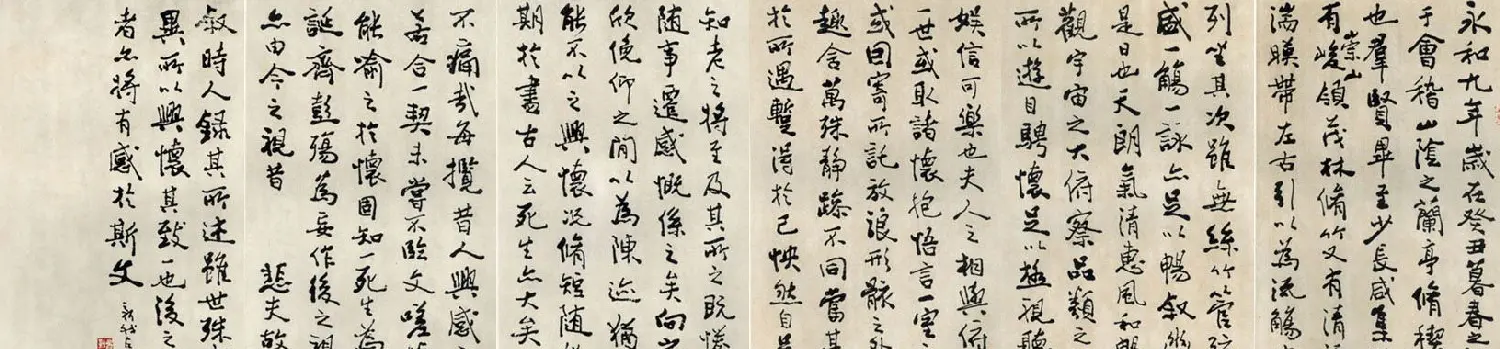 永和九年歲在癸丑暮春之
于會稽山陰之蘭亭脩稧
也羣賢畢至少長咸集
有崇山峻領茂林脩竹又有清
湍暎帶左右引以為流觴
列坐其次雖無絲竹管弦
盛一觴一詠亦足以暢敘幽
是日也天朗氣清惠風和暢
觀宇宙之大俯察品類之
所以遊目騁懷足以極視聽
娛信可樂也夫人之相與俯
一世或取諸懷抱悟言一室之
或因寄所託放浪形骸之外
趣舍萬殊靜躁不同當其
於所遇蹔得於己怏然自足
知老之將至及其所之既惓
隨事遷感慨係之矣向之
欣俛仰之間以為陳迹猶
能不以之興懷況脩短隨
期於盡古人云死生亦大矣
不痛哉每攬昔人興感
若合一契未嘗不臨文嗟
能喻之於懷固知一死生為
誕齊彭殤為妄作後之視
亦由今之視昔 悲夫故
敘時人錄其所述雖世殊
異所以興懷其致一也後之
者亦將有感於斯文